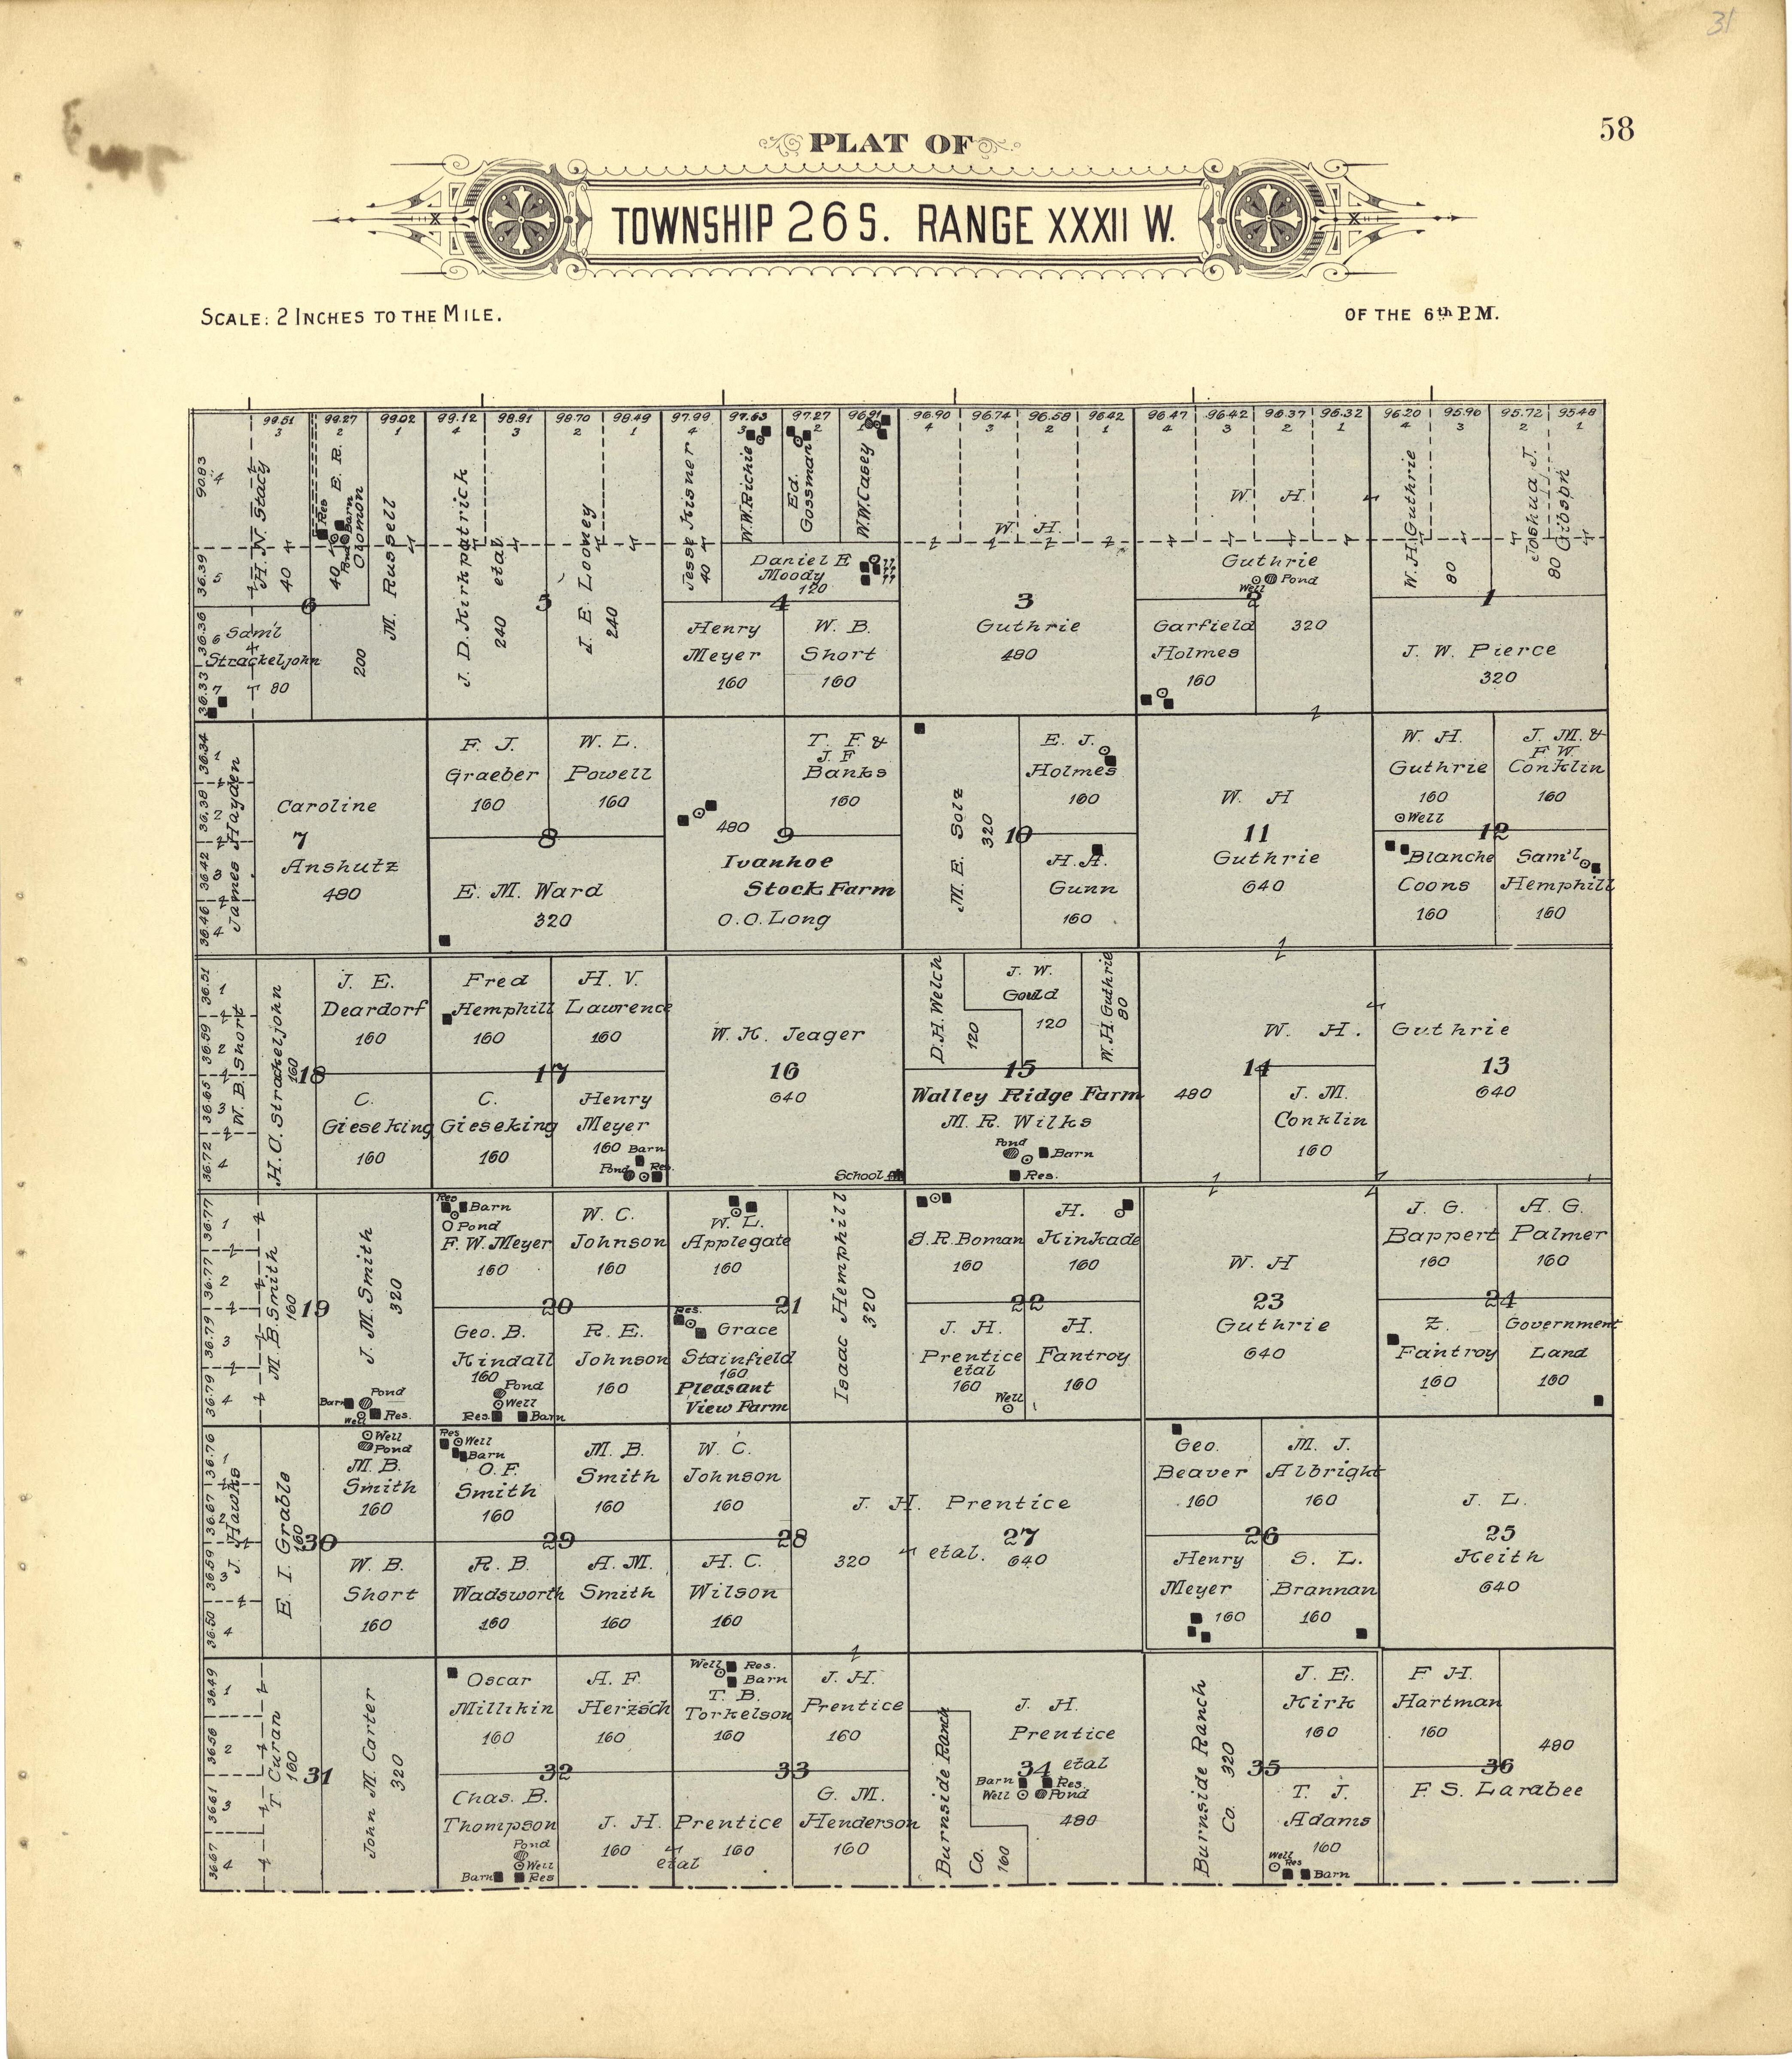 31
58
PLAT OF
TOWNSHIP 26 S. RANGE XXXII W.
SCALE: 2 INCHES TO THE MILE.
OF THE 6th P.M.
99.51 99.27 99.02 99.12 98.91 98.70 98.49 97.99 97.63 97.27 96.91 96.90 96.74 96.58 96.42 96.47 96.42 96.37 96.32 96.20 95.96 95.72 95.48
3 2 1 4 3 2 1 4 3 2 1 4 3 2 1 4 3 2 1 4 3 2 1
90.83
4
36.39
5
36.36
6
36.33
7
H. N. Stacy
40
E. R.
Olomon
40
Res
Barn
Pond
M. Russell
200
6
Sam'l
Strackeljohn
80
J. D. Kirkpatrick
etal
240
5
J. E. Looney
240
Jesse Kisner
40
W.W. Richie
Ed.
Gossman
W.W. Casey
Daniel E
Moody
120
4
Henry
Meyer
160
W. B.
Short
160
W. H.
3
Guthrie
480
W. H.
Guthrie
Well
Pond
2
Garfield
Holmes
160
320
W. H. Guthrie
80
Joshua J.
Gibson
80
1
J. W. Pierce
320
36.34
1
36.38
2
36.42
3
36.46
4
James Hayden
Caroline
7
Anshutz
480
F. J.
Graeber
160
W. L.
Powell
160
8
E. M. Ward
320
T. F. &
J. F
Banks
160
480
9
Ivanhoe
Stock Farm
O. O. Long
M. E. Solz
320
10
E. J.
Holmes
160
H. A.
Gunn
160
W. H
11
Guthrie
640
W. H.
Guthrie
160
Well
J. M. &
F. W.
Conklin
160
12
Blanche
Coons
160
Sam'l
Hemphill
160
36.51
1
36.59
2
36.65
3
36.72
4
W. B. Short
H. C. Strackeljohn
160
18
J. E.
Deardorf
160
C.
Gieseking
160
Fred
Hemphill
160
H. V.
Lawrence
160
17
C.
Gieseking
160
Henry
Meyer
160
Barn
Pond
Res.
W. K. Jeager
16
640
School
D. H. Welch
120
J. W.
Gould
120
W. H. Guthrie
80
15
Walley Ridge Farm
M. R. Wilks
Pond
Barn
Res.
W. H. Guthrie
14
480
J. M.
Conklin
160
13
640
36.77
1
36.77
2
36.79
3
36.79
4
M. B. Smith
160
19
J. M. Smith
320
Barn
Pond
Well
Res.
Res
Barn
Pond
F. W. Meyer
160
W. C.
Johnson
160
20
Geo. B.
Kindall
160
Pond
Well
Res.
Barn
R. E.
Johnson
160
W. L.
Applegate
160
21
Res.
Grace
Stainfield
160
Pleasant
View Farm
Isaac Hemphill
320
S. R. Boman
160
H.
Kinkade
160
22
J. H.
Prentice
etal
160
Well
H.
Fantroy
160
W. H
23
Guthrie
640
J. G.
Bappert
160
A. G.
Palmer
160
24
Z.
Fantroy
160
Government
Land
160
36.76
1
36.67
2
36.59
3
36.50
4
J. Hawks
E. I. Grable
160
30
Well
Pond
M. B.
Smith
160
W. B.
Short
160
Res
Well
Barn
O. F.
Smith
160
M. B.
Smith
160
29
R. B.
Wadsworth
160
A. M.
Smith
160
W. C.
Johnson
160
28
H. C.
Wilson
160
J. H. Prentice
27
320
etal.
640
Geo.
Beaver
160
M. J.
Albright
160
26
Henry
Meyer
160
S. L.
Brannan
160
J. L.
25
Keith
640
36.49
1
36.56
2
36.61
3
36.67
4
T. Curan
160
31
John M. Carter
320
Oscar
Millikin
160
A. F.
Herzsch
160
32
Chas. B.
Thompson
Pond
Well
Barn
Res
Well
Res.
Barn
T. B.
Torkelson
160
J. H.
Prentice
160
33
J. H. Prentice
160
160
etal
G. M.
Henderson
160
Burnside Ranch
Co.
160
J. H.
Prentice
34
etal
Barn
Res.
Well
Pond
480
Burnside Ranch
Co.
320
35
J. E.
Kirk
160
T. J.
Adams
160
Well
Res
Barn
F. H.
Hartman
160
480
36
F. S. Larabee